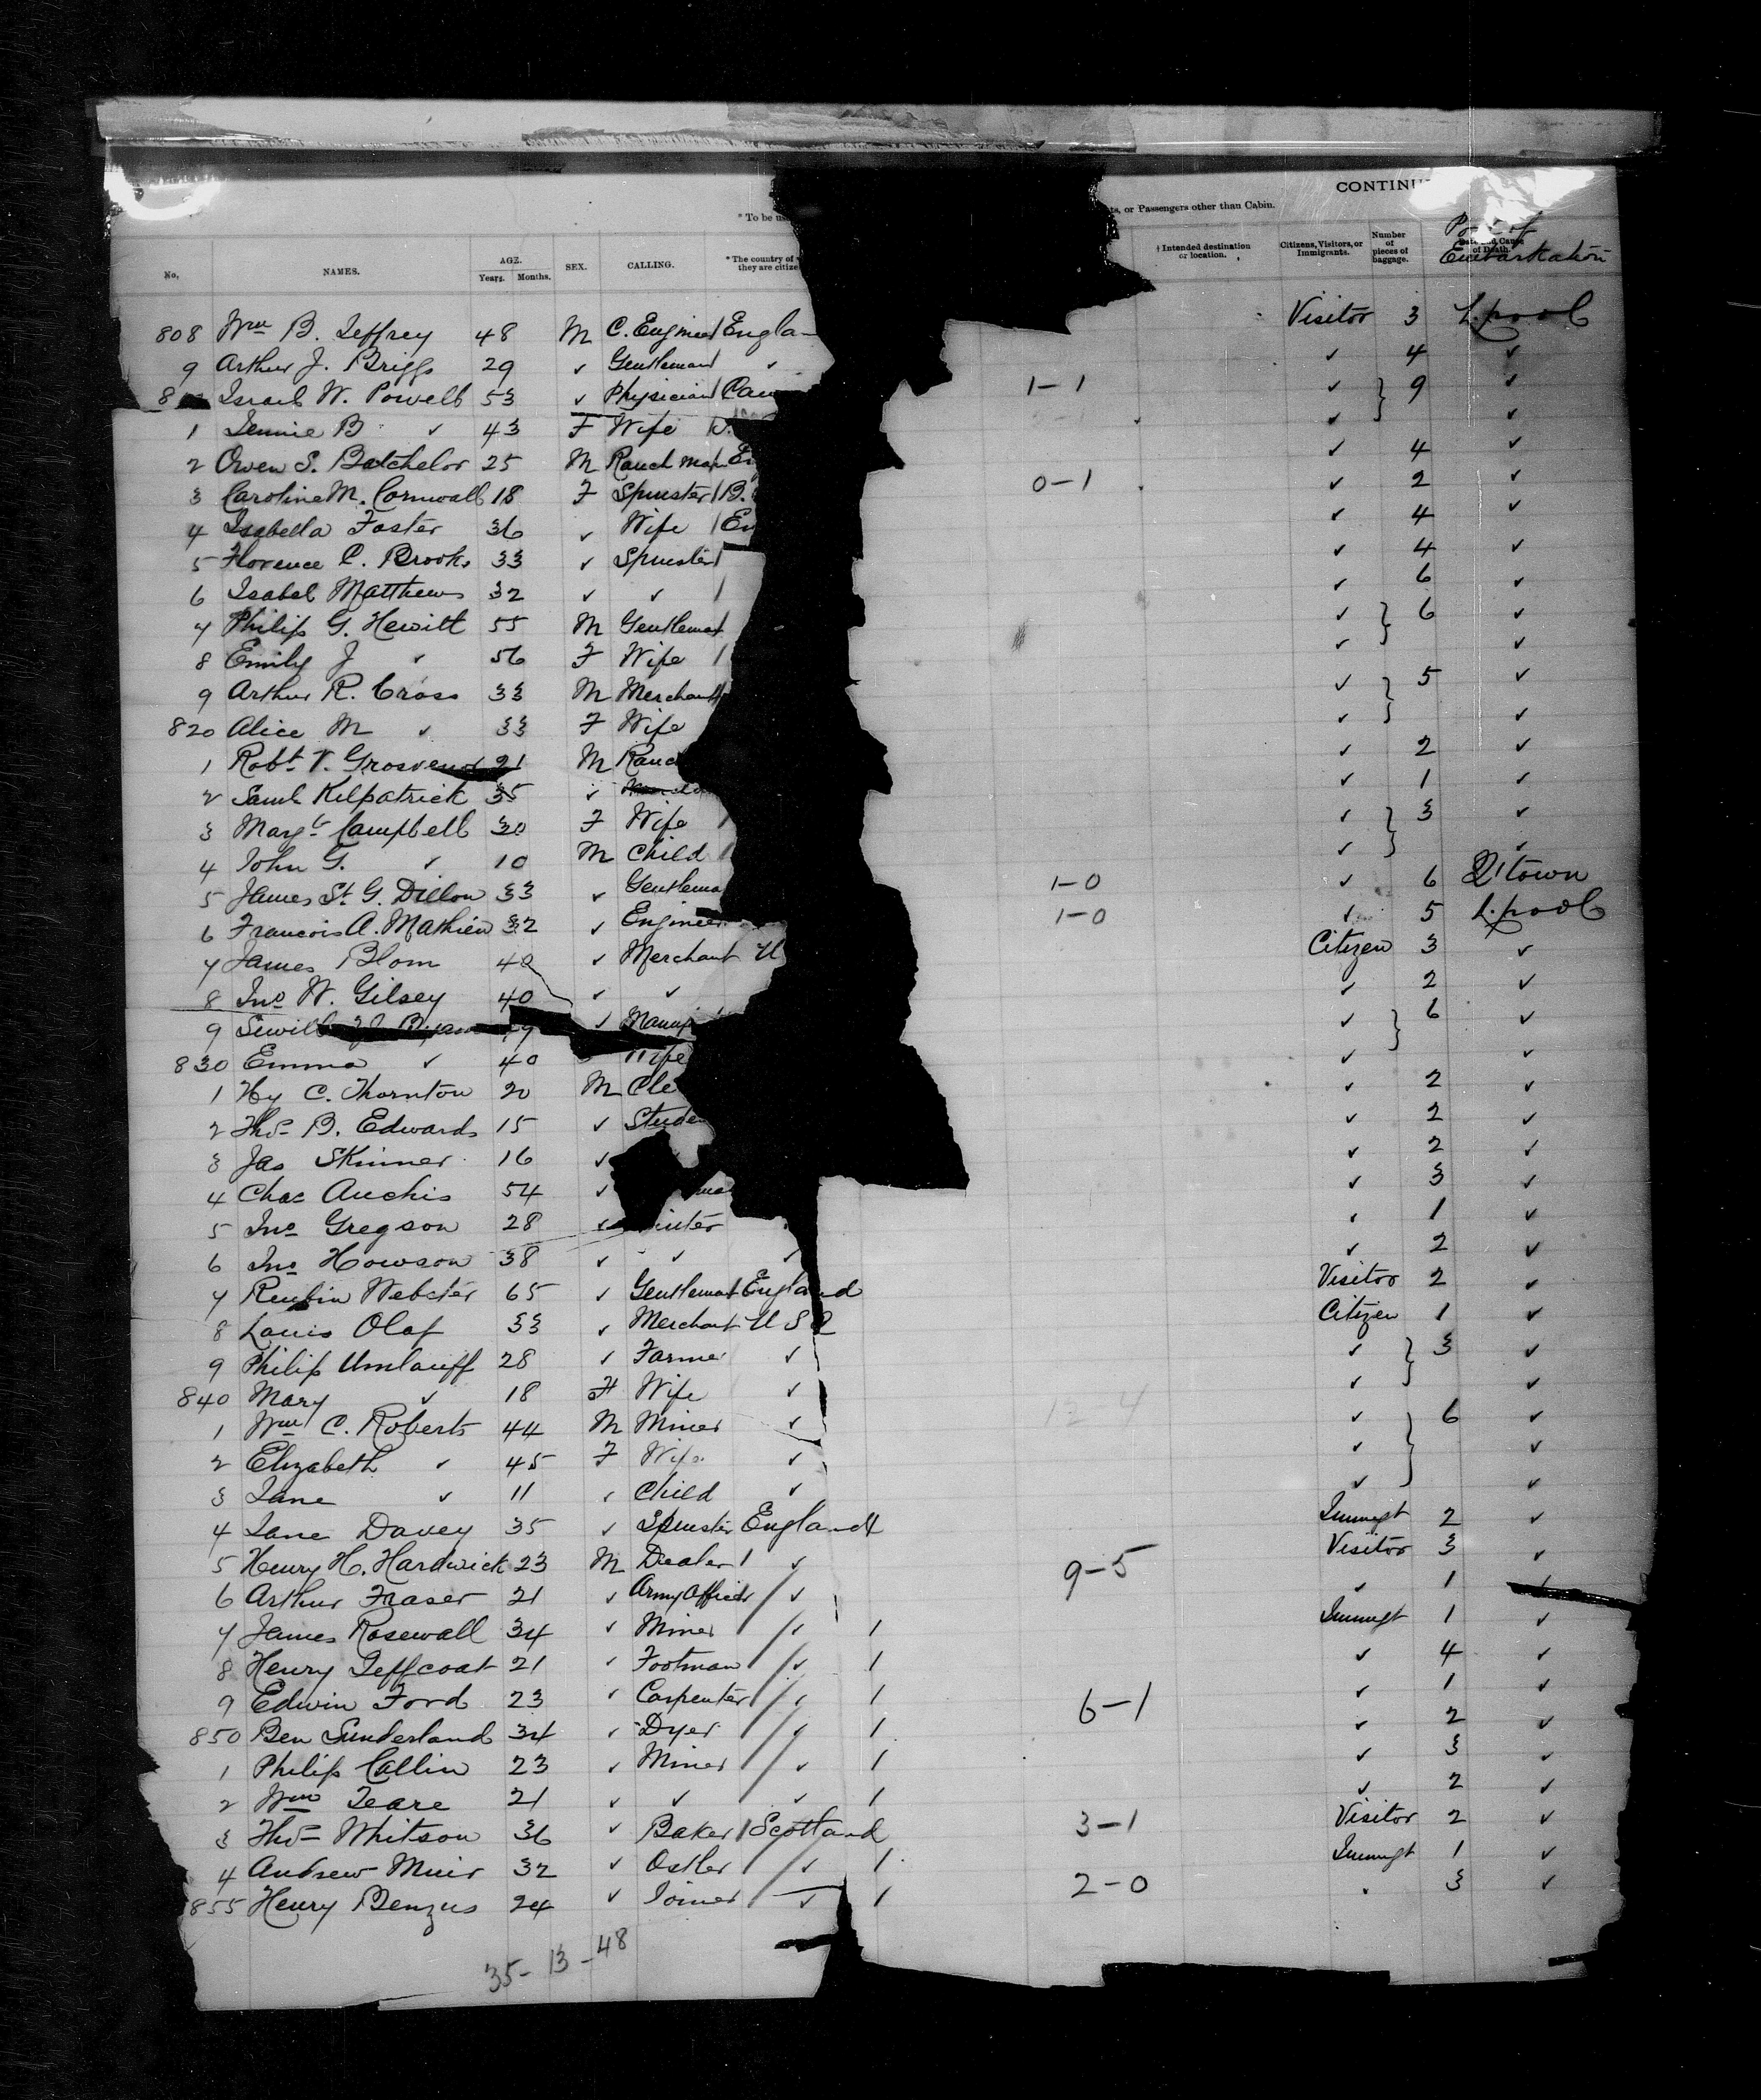 CONTINU
* To be us
ts, or Passengers other than Cabin.
No. NAMES. AGE. Years. Months. SEX. CALLING. * The country of they are citize † Intended destination or location. Citizens, Visitors, or Immigrants. Number of pieces of baggage. Port of Embarkation Date and Cause of Death.
808 Wm B. Jeffrey 48 M C. Engineer Engla Visitor 3 L.pool
9 Arthur J. Briggs 29 ✓ Gentleman ✓ ✓ 4 ✓
8 Israel W. Powell 53 ✓ Physician Can 1-1 ✓ } 9 ✓
1 Jennie B ✓ 43 F Wife ✓ ✓
2 Owen S. Batchelor 25 M Ranch man En ✓ 4 ✓
3 Caroline M. Cornwall 18 F Spinster B. 0-1 ✓ 2 ✓
4 Isabella Foster 36 ✓ Wife En ✓ 4 ✓
5 Florence C. Brooks 33 ✓ Spinster ✓ 4 ✓
6 Isabel Matthews 32 ✓ ✓ ✓ 6 ✓
7 Philip G. Hewitt 55 M Gentleman ✓ } 6 ✓
8 Emily J ✓ 56 F Wife ✓ ✓
9 Arthur R. Cross 33 M Merchant ✓ } 5 ✓
820 Alice M ✓ 33 F Wife ✓ ✓
1 Robt. V. Grosvenor 21 M Ranc ✓ 2 ✓
2 Saml Kilpatrick 35 ✓ ✓ 1 ✓
3 Margt Campbell 30 F Wife ✓ } 3 ✓
4 John G. ✓ 10 M Child ✓ ✓
5 James St. G. Dillon 33 ✓ Gentlema 1-0 ✓ 6 Q'town
6 Francois A. Mathieu 32 ✓ Engineer 1-0 ✓ 5 L.pool
7 James Blom 40 ✓ Merchant U Citizen 3 ✓
8 Jno W. Gilsey 40 ✓ ✓ ✓ 2 ✓
9 ✓ Manuf ✓ } 6 ✓
830 Emma ✓ 40 Wife ✓ ✓
1 Hy C. Thornton 20 M Cle ✓ 2 ✓
2 Thos B. Edwards 15 ✓ Studen ✓ 2 ✓
3 Jas Skinner 16 ✓ ✓ 2 ✓
4 Chas Auchis 54 ✓ ✓ 3 ✓
5 Jno Gregson 28 ✓ inter ✓ 1 ✓
6 Jno Howson 38 ✓ ✓ ✓ ✓ 2 ✓
7 Reubin Webster 65 ✓ Gentleman England Visitor 2 ✓
8 Louis Olaf 33 ✓ Merchant U S A Citizen 1 ✓
9 Philip Umlauff 28 ✓ Farmer ✓ ✓ } 3 ✓
840 Mary ✓ 18 F Wife ✓ ✓ ✓
1 Wm C. Roberts 44 M Miner ✓ 12-4 ✓ } 6 ✓
2 Elizabeth ✓ 45 F Wife ✓ ✓ ✓
3 Jane ✓ 11 ✓ Child ✓ ✓ ✓
4 Jane Davey 35 ✓ Spinster England Immigt 2 ✓
5 Henry H. Hardwick 23 M Dealer ✓ 9-5 Visitor 3 ✓
6 Arthur Fraser 21 ✓ Army Officer ✓ ✓ 1 ✓
7 James Rosewall 34 ✓ Miner ✓ 1 Immigt 1 ✓
8 Henry Jeffcoat 21 ✓ Footman ✓ 1 ✓ 4 ✓
9 Edwin Ford 23 ✓ Carpenter ✓ 1 6-1 ✓ 1 ✓
850 Ben Sunderland 34 ✓ Dyer ✓ 1 ✓ 2 ✓
1 Philip Callin 23 ✓ Miner ✓ 1 ✓ 3 ✓
2 Wm Teare 21 ✓ ✓ ✓ 1 ✓ 2 ✓
3 Thos Whitson 36 ✓ Baker Scotland 3-1 Visitor 2 ✓
4 Andrew Muir 32 ✓ Ostler ✓ 1 Immigt 1 ✓
855 Henry Benzus 24 ✓ Joiner ✓ 1 2-0 3 ✓
35-13-48